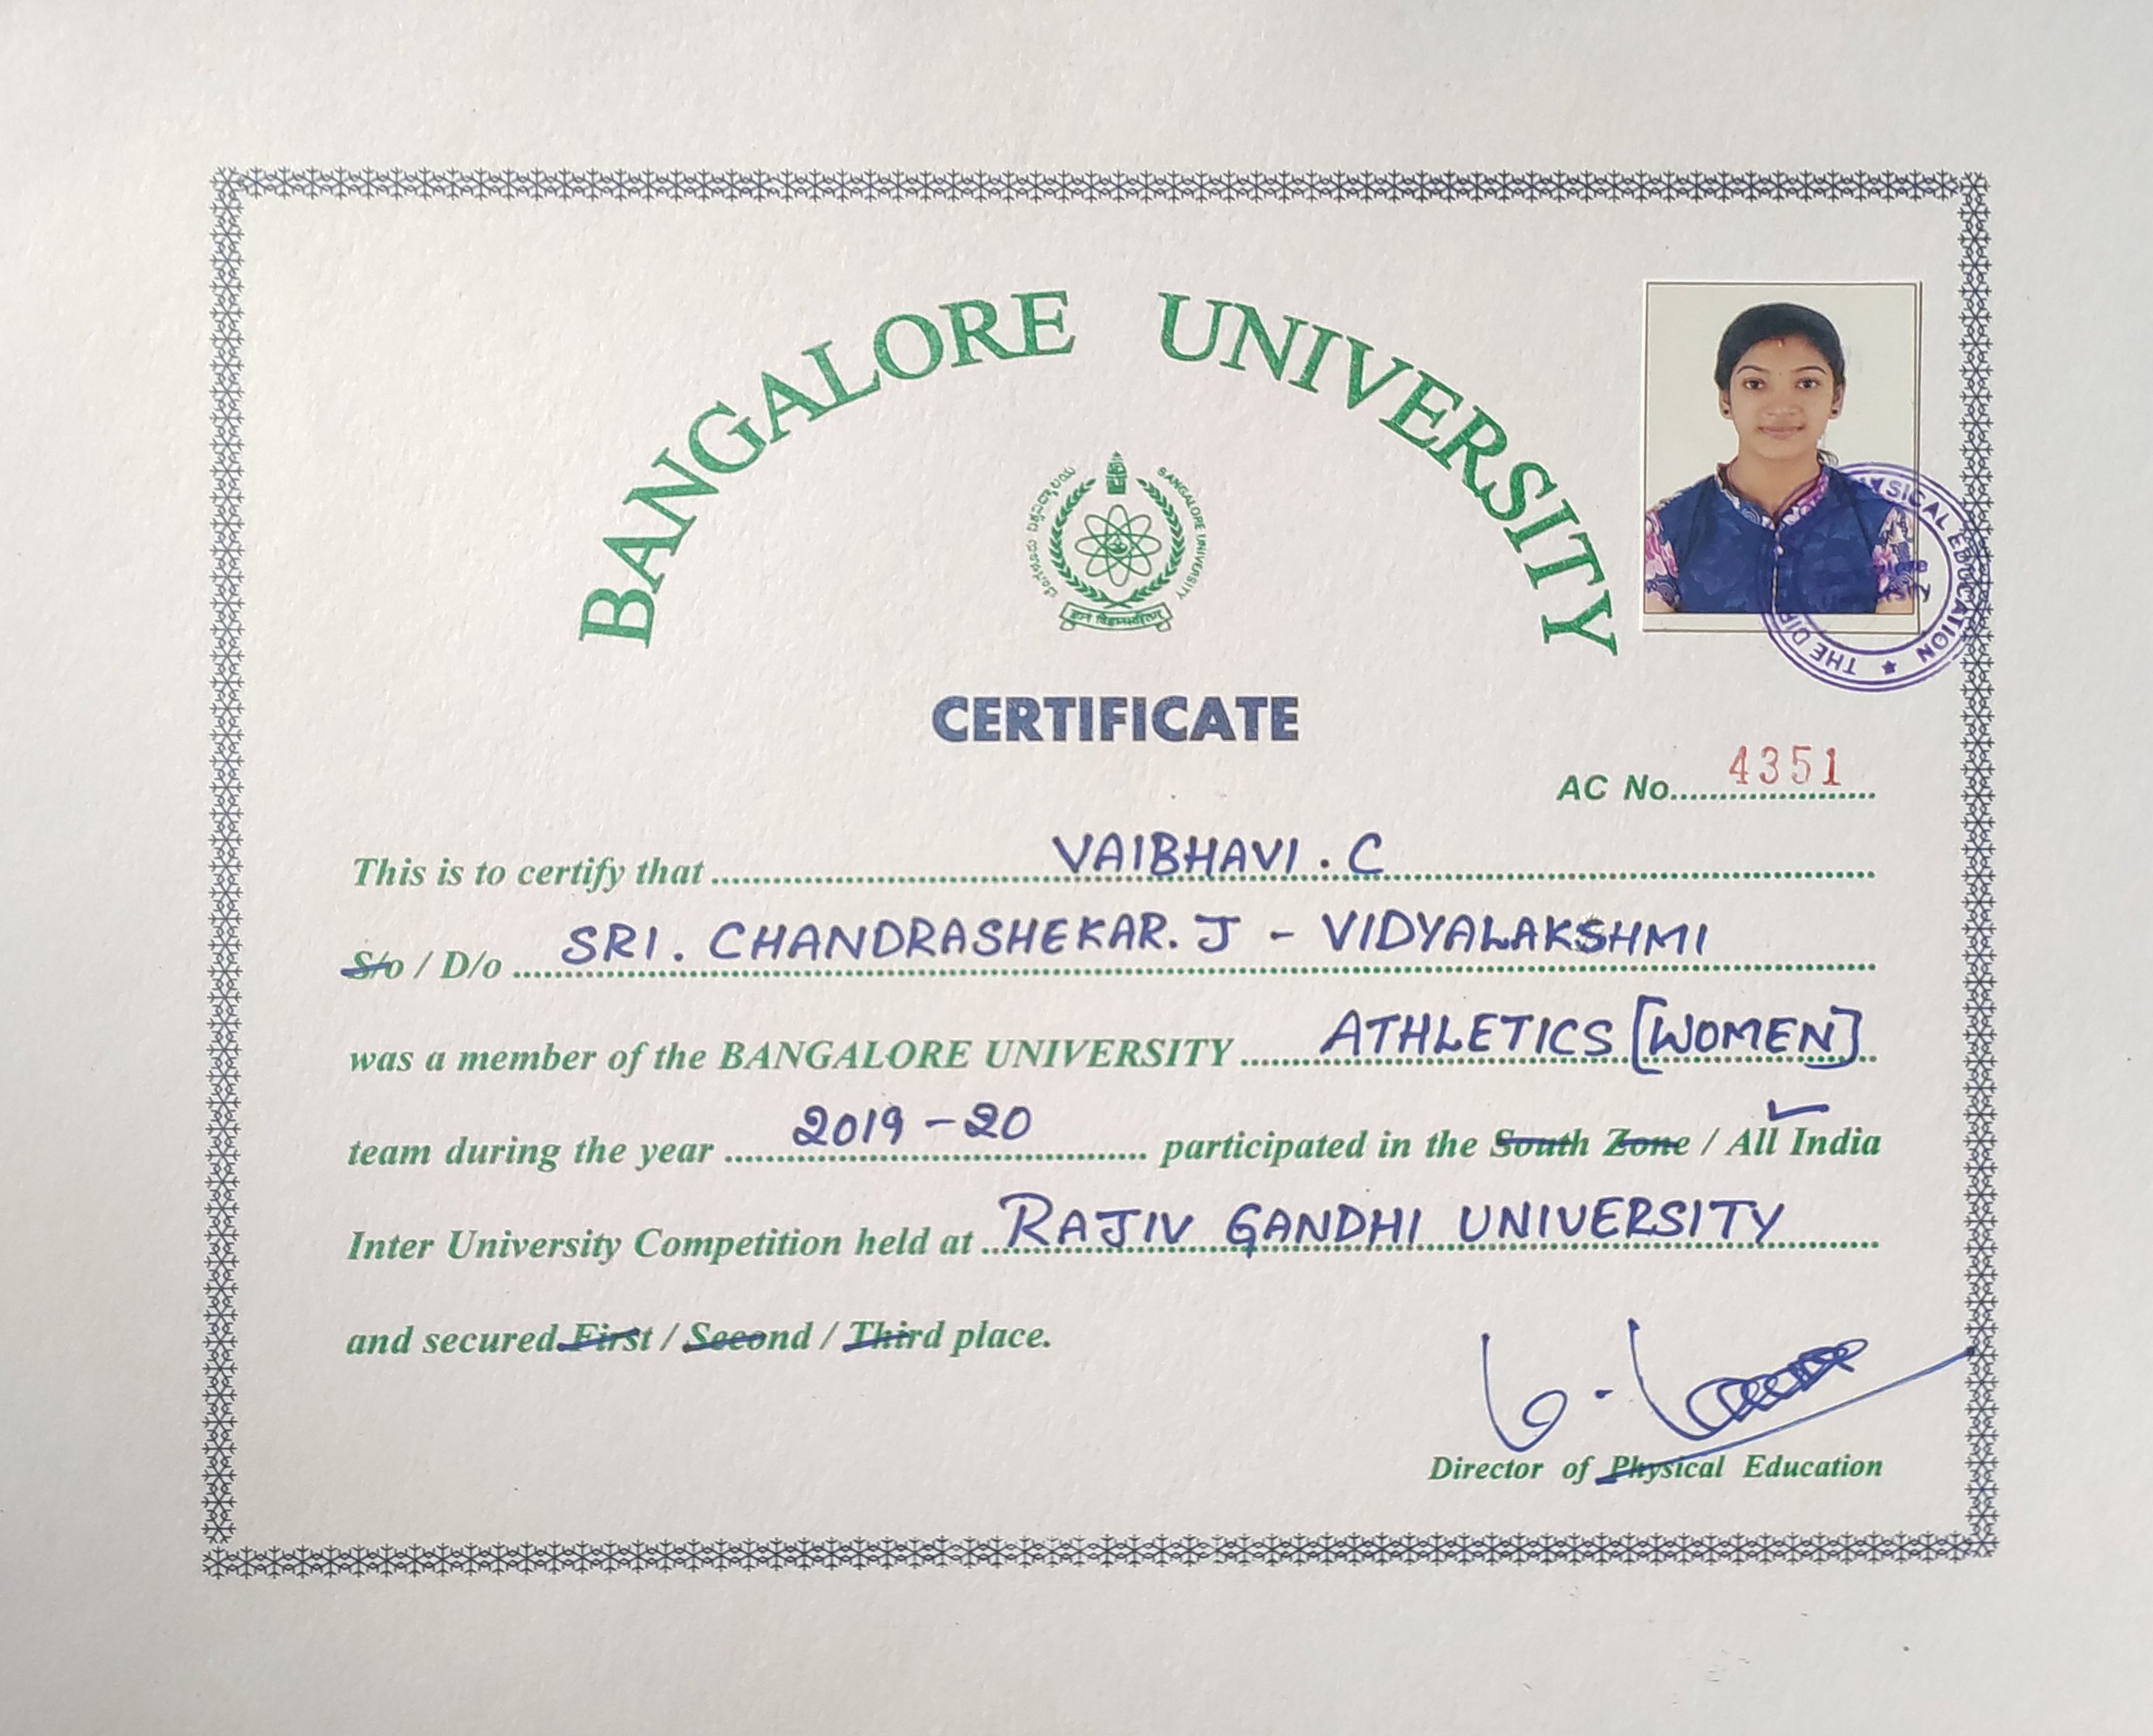 BANGALORE UNIVERSITY
ಬೆಂಗಳೂರು ವಿಶ್ವವಿದ್ಯಾಲಯ
BANGALORE UNIVERSITY
ज्ञानं विज्ञानसहितम्
PHYSICAL EDUCATION
THE
CERTIFICATE
AC No. 4351
This is to certify that VAIBHAVI . C
S/o / D/o SRI . CHANDRASHEKAR. J - VIDYALAKSHMI
was a member of the BANGALORE UNIVERSITY ATHLETICS [WOMEN]
team during the year 2019 - 20 participated in the South Zone / All India
Inter University Competition held at RAJIV GANDHI UNIVERSITY
and secured First / Second / Third place.
Director of Physical Education